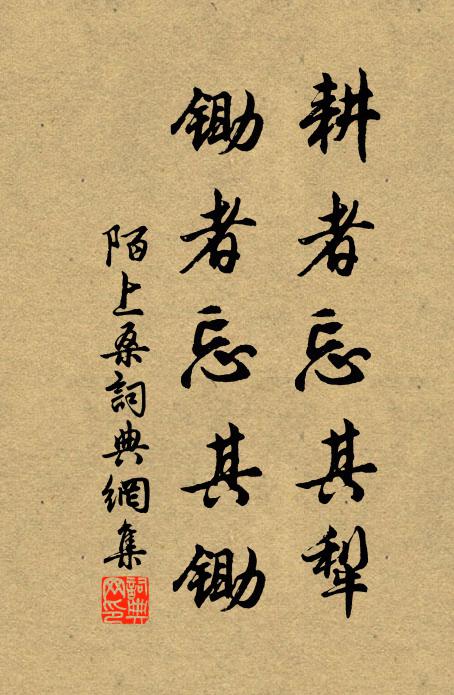 耕者忘其犁
鋤者忘其鋤
陌上桑詞典網集
詞典网印